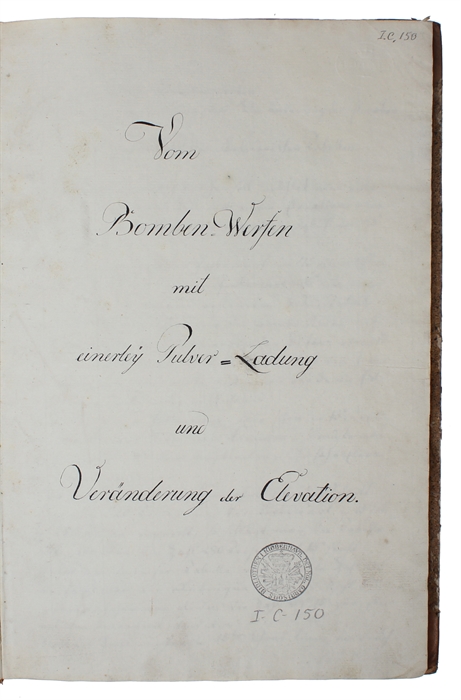 I.C. 150
Vom
Bomben-Werfen
mit
einerleÿ Pulver=Ladung
und
Veränderung der Elevation.
I-C-150